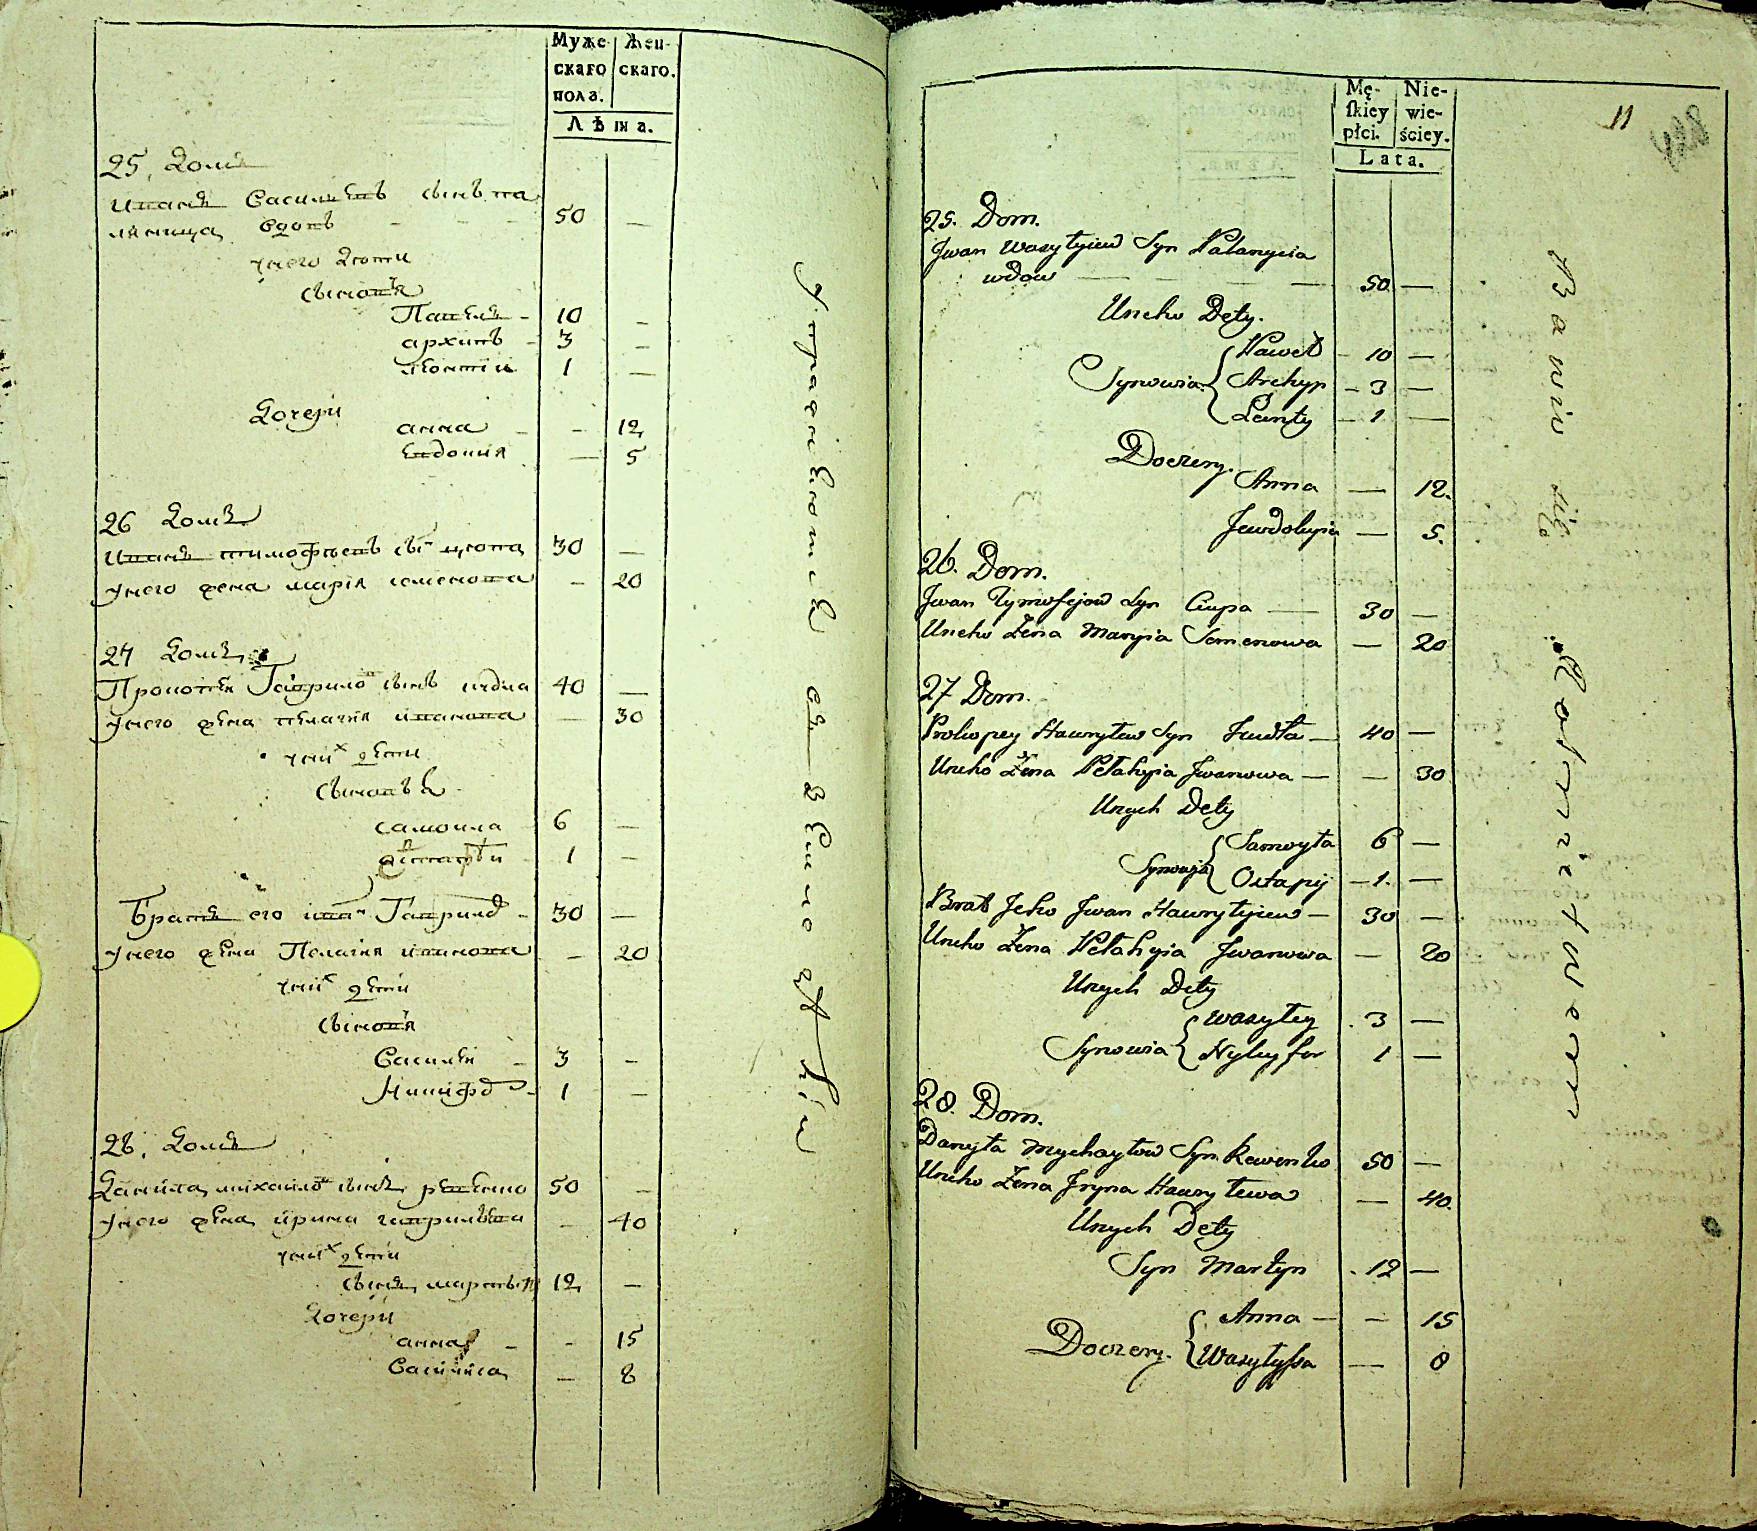 Муже-
скаго
пола.
Жен-
скаго.
Лѣта.
25. Домъ
Иванъ Васильевъ сынъ па
ляница вдовъ - - - 50 —
у него дѣти
сыновья
Павелъ - 10 -
архипъ - 3 -
леонтіи 1 —
Дочери
анна - - 12
Евдокия — 5
26 Домъ
Иванъ тимофѣевъ сынъ цюпа 30 —
у него жена марія семенова - 20
27 Домъ
Прокопей Гаврилов сынъ 40 —
у него жена пелагия иванова — 30
у них дѣти
сыновья
самоила 6 —
астафѣи - 1 —
братъ его иван Гаврилов - 30 —
у него жена Пелагия иванова - 20
у них дети
сыновья
Василей - 3 -
Никифор - 1 -
28. Домъ
Данила михайлов сынъ ревенко 50 -
у него жена ирина гаврилова - 40
у них дети
сынъ мартын 12 —
Дочери
анна - - 15
Васелиса — 8
Упражняются въ земледѣліи
Mę-
skiey
płci.
Nie-
wie-
ściey.
Lata.
11
25. Dom.
Jwan Wasylyiew Syn Palanycia
wdow — — — 50 —
Uneho Dety.
Synowia { Paweł - 10 —
Archyp - 3 —
Lenty - 1 —
Doczery.
Anna — 12.
Jewdokyia — 5.
26. Dom.
Jwan Tymofejow Syn Ciupa — 30 —
Uneho Żena Maryia Semenowa — 20
27 Dom.
Prokopey Hawryłow Syn — 40 —
Uneho Żena Pełahyia Jwanowa — — 30
Unych Dety
Synowia { Samoyła 6 —
Ostapij - 1. —
Brat Jeho Jwan Hawryłyiew — 30 —
Uneho Żena Pełahyia Jwanowa — 20
Unych Dety
Synowia { Wasyley . 3 —
Nykyfor 1 —
28. Dom.
Danyła Mychayłow Syn Rewenko 50 —
Uneho Żena Jryna Hawryłewa — 40.
Unych Dety
Syn Martyn . 12 —
Doczery. { Anna — — 15
Wasylyssa — 8
Bawią się Rolnictwem